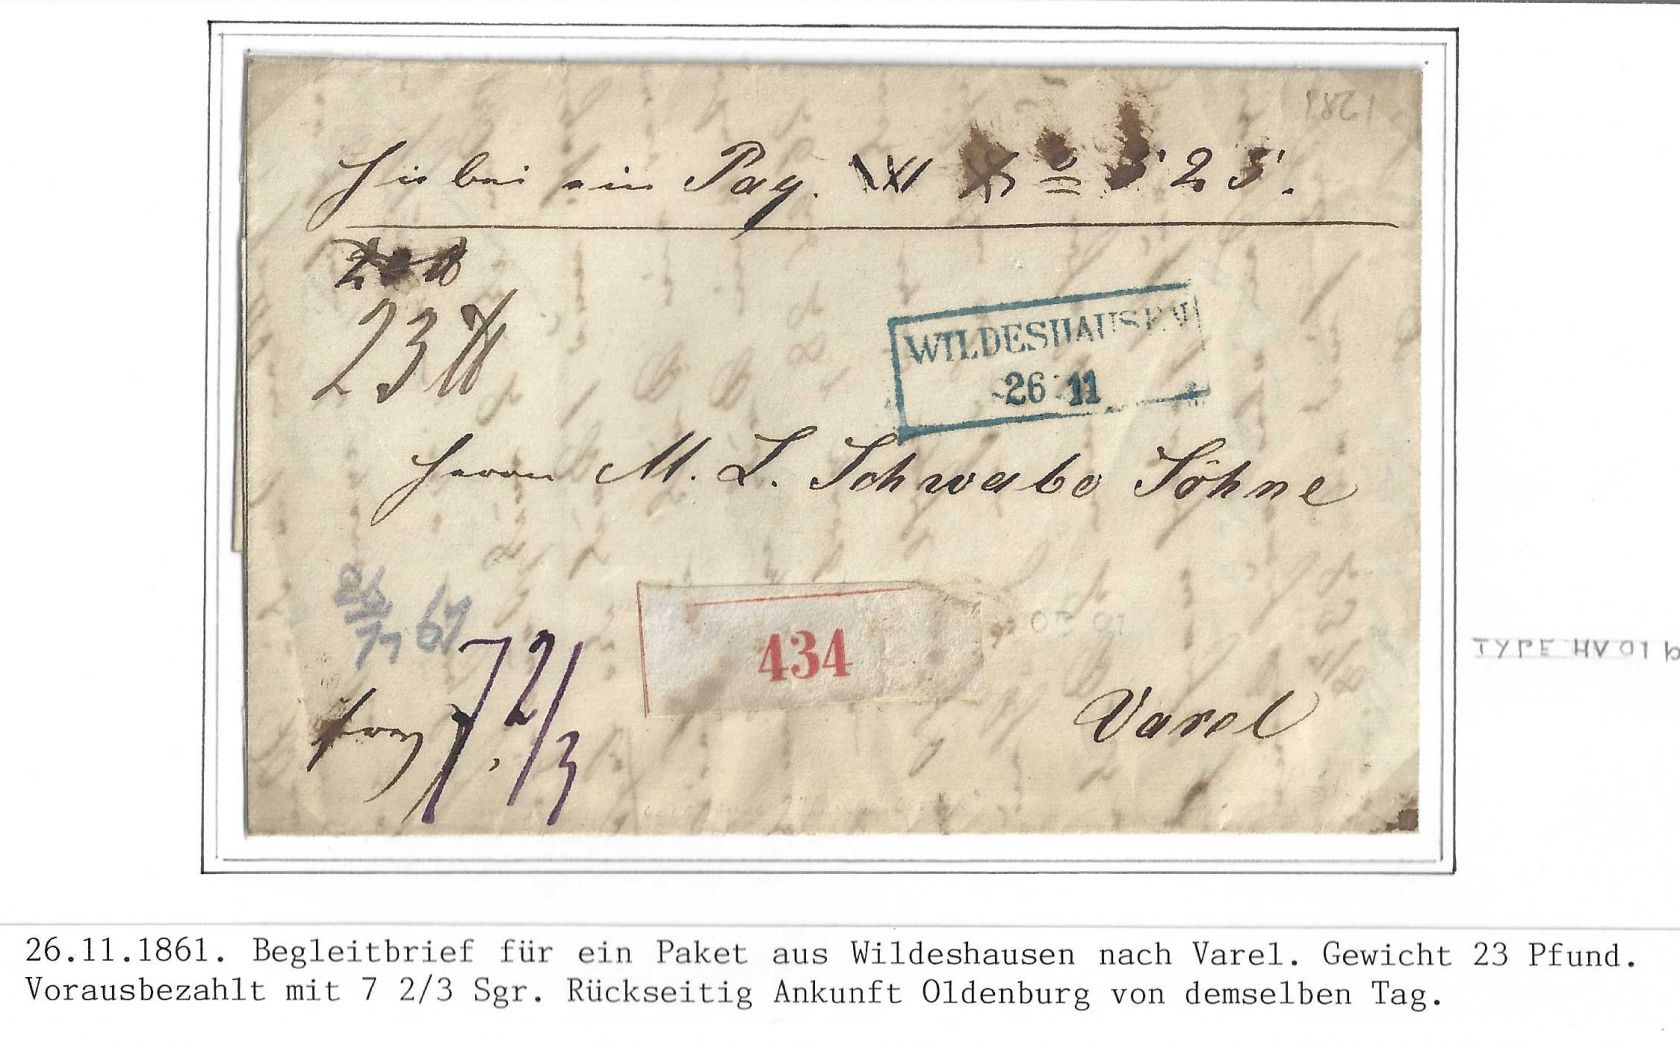 1821
Hiebei ein Pag. N° 325.
23 ℔
WILDESHAUSEN
26 11
Herrn M. L. Schwabe Söhne
26/11 61
434
7 2/3
Varel
TYPE HV 01 b
26.11.1861. Begleitbrief für ein Paket aus Wildeshausen nach Varel. Gewicht 23 Pfund.
Vorausbezahlt mit 7 2/3 Sgr. Rückseitig Ankunft Oldenburg von demselben Tag.